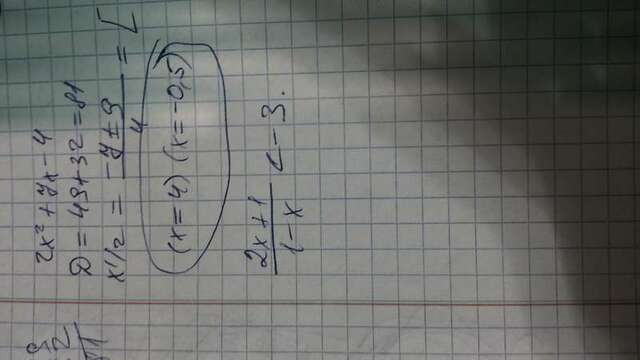 2x² + 7x - 4
D = 49 + 32 = 81
x 1/2 = \frac{-7 ± 9}{4} = [
(x = 4) (x = -0,5)
\frac{2x + 1}{1 - x} < -3.